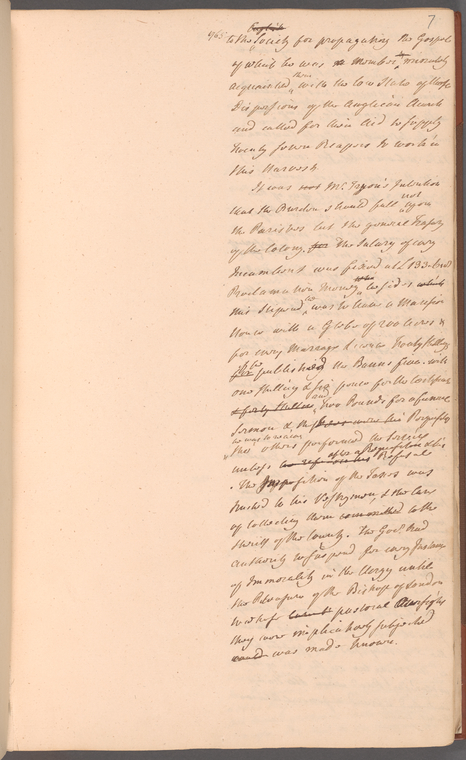 7
1765
English
to the Society for propagating the Gospel
of which he was a Member, minutely
acquainted them with the low State of those
Dispersions of the Anglican Church
and called for their Aid to supply
twenty seven Reapers to work in
this Harvest.
It was not Mr. Tryon's Intention
that the Burden should fall not upon
the Parishes but the general Treasury
of the Colony. for The Salary of every
Incumbent was fixed at £133
Proclamation Money, who besides which
this Stipend was to have a Mansion
House with a Glebe of 200 Acres &
for every Marriage Licence Twenty Shillings
if he published the Banns five. with
one Shilling & six pence for the Certificate
& forty Shillings and two Pounds for a funeral
Sermon &
he was to receive
others performed the Service
unless after a Requisition & his Refusal
. The Imposition of the Taxes was
trusted to his Vestrymen, & the Care
of collecting them committed to the
Sheriff of the County. The Govr. had
Authority to suspend for every Instance
of Immorality in the Clergy until
the Pleasure of the Bishop of London
to whose pastoral Oversight
they were implicitely subjected
was made known.